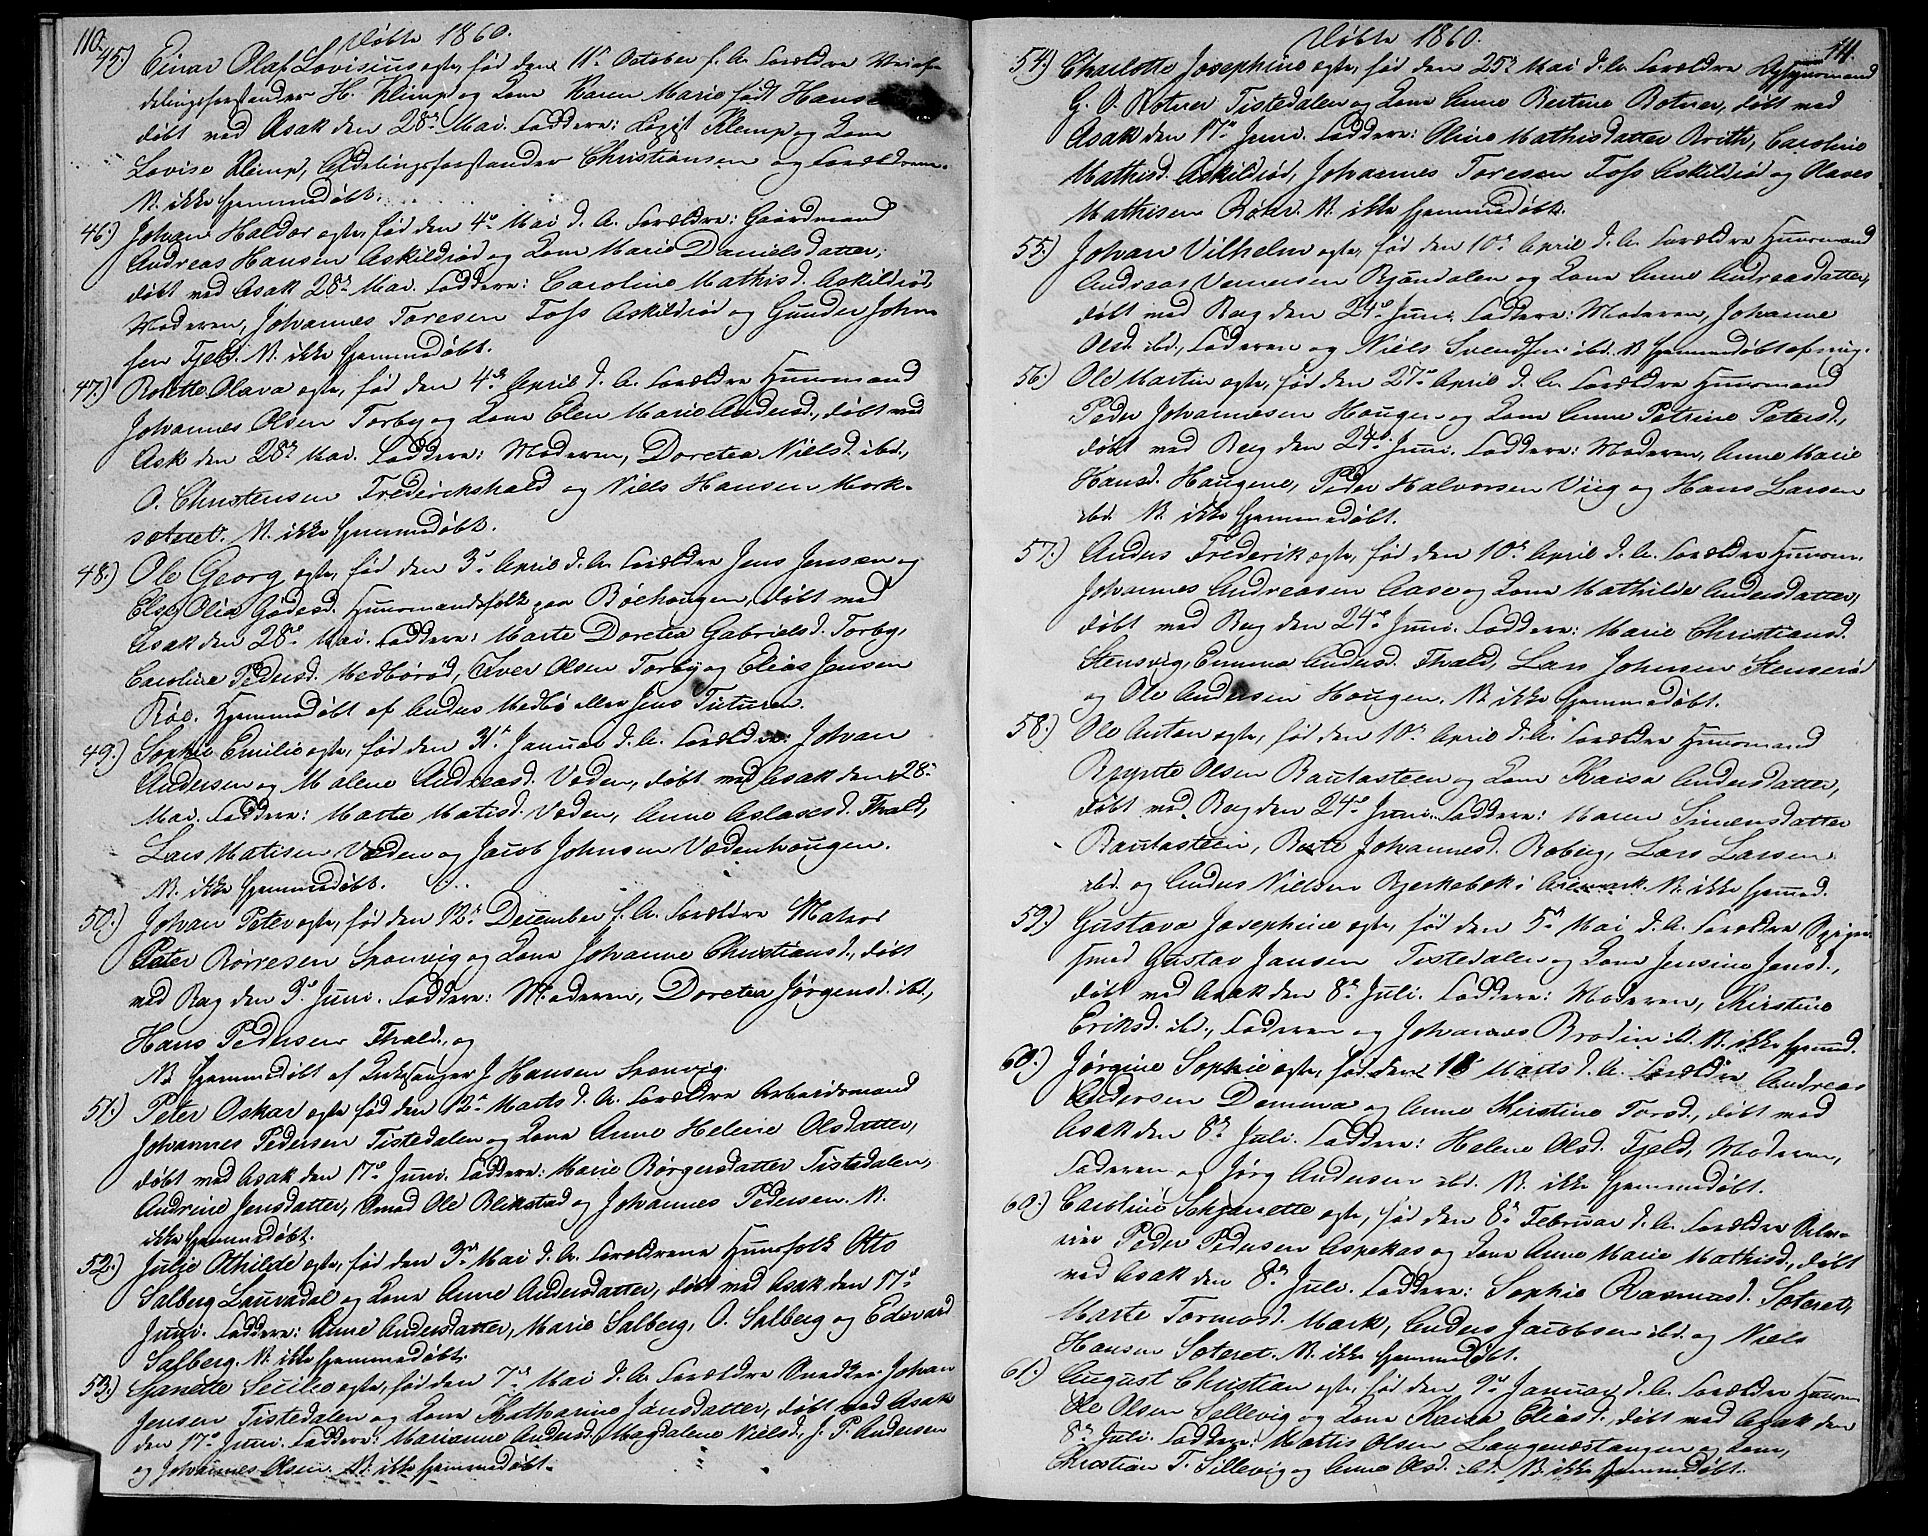 110.
Døbte 1860.
45.) Einar Olaf Lovisius egte, fød den 11te October f. A. Forældre
delingsforstander H. Klemp og Kone Karen Marie født Hansen
døbt ved Asak den 28de Mai. Faddere: Klemp og Kone
Lovise Klemp, Afdelingsforstander Christiansen og Forældrene.
N. ikke hjemmedøbt.
46.) Johan Haldor egte, fød den 4de Mai d. A. Forældre: Gaardmand
Andreas Hansen Askildrød og Kone Marie Danielsdatter,
døbt ved Asak 28de Mai. Faddere: Caroline Mathisd. Askildrød
Moderen, Johannes Toresen Foss Askildrød og Gunder John-
sen Fjeld. N. ikke hjemmedøbt.
47.) Rosette Olava egte, fød den 4de April d. A. Forældre Huusmand
Johannes Olsen Torby og Kone Elen Marie Andersd., døbt ved
Ask den 28de Mai. Faddere: Moderen, Doretea Nielsd. ibd.,
O. Christensen Frederikshald og Niels Hansen Mork-
sæteret. N. ikke hjemmedøbt.
48.) Ole Georg egte, fød den 3de April d. A. Forældre Jens Jensen og
Else Olia Gødesd. Huusmandsfolk paa Bøehougen, døbt ved
Asak den 28de Mai. Faddere: Marte Doretea Gabrielsd. Torby,
Caroline Pedersd. Medbørød, Iver Olsen Torby og Elias Jensen
Røe. Hjemmedøbt af Anders Medbø eller Jens
49.) Sophie Emilie egte, fød den 31te Januar d. A. Forældre Johan
Andersen og Malene Andreasd. Veden, døbt ved Asak den 28de
Mai. Faddere: Marte Matisd. Veden, Anne Aslaksd. Fhald,
Lars Matisen Veden og Jacob Johnsen Vedenhougen.
N. ikke hjemmedøbt.
50.) Johan Peter egte, fød den 12te December f. A. Forældre Matros
Peter Børresen Sponvig og Kone Johanne Christiansd., døbt
ved Berg den 3de Juni. Faddere: Moderen, Doretea Jørgensd. ibd.,
Hans Pedersen Fhald., og
N. Hjemmedøbt af Kirkesanger J. Hansen Sponvig.
51.) Peter Oskar egte fød den 12te Marts d. A. Forældre Arbeidsmand
Johannes Pedersen Tistedalen og Kone Anne Helene Olsdatter,
døbt ved Asak den 17de Juni. Faddere: Marie Børgersdatter Tistedalen,
Andrine Jensdatter, Smed Ole Blikstad og Johannes Pedersen. N.
ikke hjemmedøbt.
52.) Julie Othilde egte, fød den 3die Mai d. A. Forældrene Huusfolk Otto
Salberg Lauvadal og Kone Anne Andersdatter, døbt ved Asak den 17de
Juni. Faddere: Anne Andersdatter, Marie Salberg, O. Salberg og Edevard
Salberg. N. ikke hjemmedøbt.
53.) Janette Secilie egte, fød den 7de Mai d. A. Forældre Snedker Johan
Jensen Tistedalen og Kone Katharine Jansdatter, døbt ved Asak
den 17de Juni. Faddere: Marianne Andersd. Magdalene Nielsd., J. P. Andersen
og Johannes Olsen. N. ikke hjemmedøbt.
Døbte 1860.
111.
54.) Charlotte Josephine egte, fød den 25de Mai d. A. Forældre
G. O. Boterer Tistedalen og Kone Anne Bertine Boterer, døbt ved
Asak den 17de Juni. Faddere: Oline Mathisdatter Brith, Caroline
Mathisd. Askildrød, Johannes Toresen Foss Askildrød og Olaves
Mathisen Røer. N. ikke hjemmedøbt.
55.) Johan Vilhelm egte, fød den 10de April d. A. Forældre Huusmand
Andreas Vernersen Bjøndalen og Kone Anne Andreasdatter,
døbt ved Berg den 24de Juni. Faddere: Moderen, Johanne
Olsd. ibd., Faderen og Niels Svendsen ibd. N. hjemmedøbt af mig.
56.) Ole Martin egte, fød den 27de April d. A. Forældre Huusmand
Peder Johannesen Hougen og Kone Anne Petrine Petersd.,
døbt ved Berg den 24de Juni. Faddere: Moderen, Anne Marie
Hansd. Haugene, Peder Halvorsen Viig og Hans Larsen
ibd. N. ikke hjemmedøbt.
57.) Anders Frederik egte, fød den 10de April d. A. Forældre Huusm.
Johannes Andreasen Aase og Kone Mathilde Andersdatter,
døbt ved Berg den 24de Juni. Faddere: Marie Christiansd.
Stensvig, Emma Andersd. Fhald, Lars Johnsen Stenserød
og Ole Andersen Hougen. N. ikke hjemmedøbt.
58.) Ole Anton egte, fød den 10de April d. A. Forældre Huusmand
Bjynte Olsen Bautasteen og Kone Kaisa Andersdatter,
døbt ved Berg den 24de Juni. Faddere: Maren Simensdatter
Bautasteen, Berte Johannesd. Boberg, Lars Larsen
ibd. og Anders Nielsen Bjerkebek i Aremark. N. ikke hjemmed.
59.) Gustava Josephine egte, fød den 5te Mai d. A. Forældre Spiger-
smed Gustav Jansen Tistedalen og Kone Jensine Jensd.,
døbt ved Asak den 8de Juli. Faddere: Moderen, Kirstine
Eriksd. ibd., Faderen og Johannes Brodin ib. N. ikke hjemmd.
60.) Jørgine Sophie egte, fød den 18 Marts d. A. Forældre Andreas
Andersen Damma og Anne Kirstine Torsd., døbt ved
Asak den 8de Juli. Faddere: Helene Olsd. Fjeld, Moderen,
Faderen og Jørg Andersen ibd. N. ikke hjemmedøbt.
60.) Caroline Schjanette egte, fød den 8de Februar d. A. Forældre
Peder Pedersen Aspekas og Kone Anne Marie Mathisd., døbt
ved Asak den 8de Juli. Faddere: Sophie Rasmusd. Sæteret,
Marte Tormosd. Mark, Anders Jacobsen ibd. og Niels
Hansen Sæteret. N. ikke hjemmedøbt.
61.) August Christian egte, fød den 9de Januar d. A. Forældre Huusm.
Ole Olsen Sellevig og Kone Kaisa Eliasd., døbt ved Asak den
8de Juli. Faddere: Mattis Olsen Langenæstangen og Kone,
Christian T. Sillevig og Anne Olsd. ibd. N. ikke hjemmedøbt.